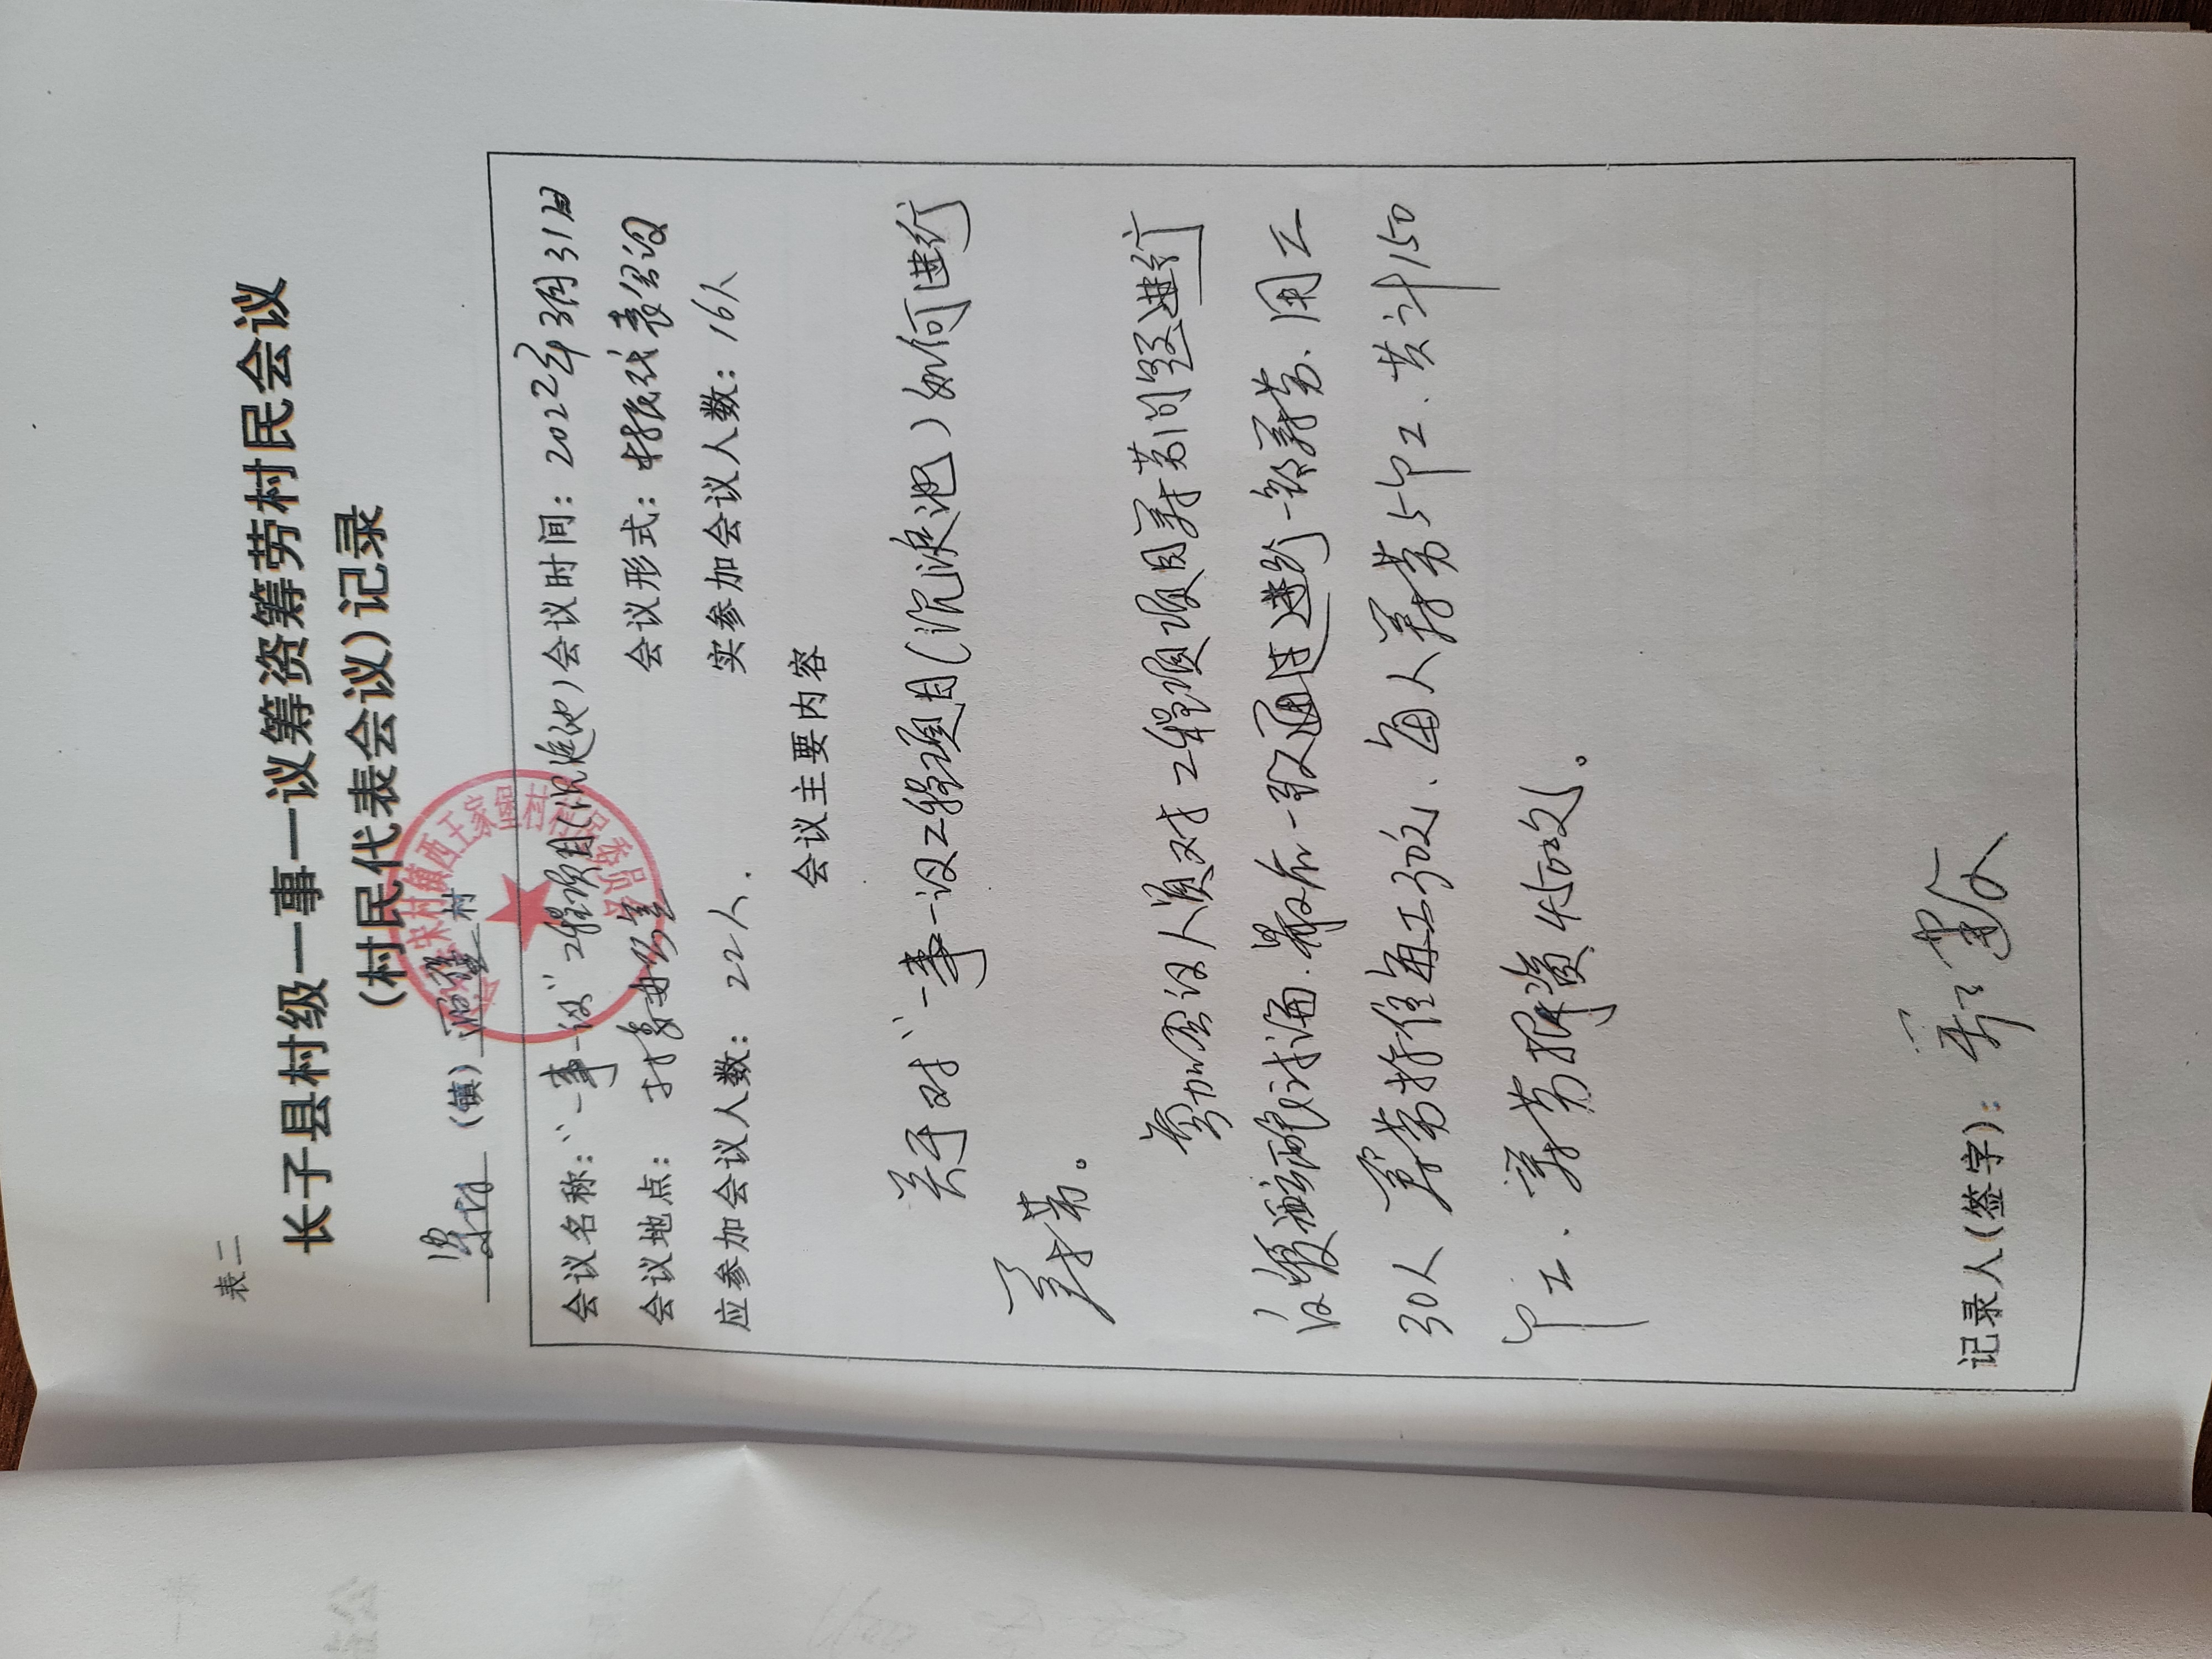 表二
长子县村级一事一议筹资筹劳村民会议
(村民代表会议)记录
宋村 (镇) 西王家堡 村
会议名称:“一事一议”工程项目(沉淀池) 会议时间: 2022年3月31日
会议地点: 村委办公室 会议形式: 村民代表会议
应参加会议人数: 22人. 实参加会议人数: 16人
会议主要内容
关于对“一事一议工程项目(沉淀池)如何进行
筹劳。
参加会议人员对工程项目筹劳问题进行
认真讨论.最后一致通过进行筹劳.用工
30人 筹劳标准每工30元、每人筹劳5个工.共计150
个工.筹劳折资4500元。
记录人(签字):
宋村镇西王家堡村村民委员会